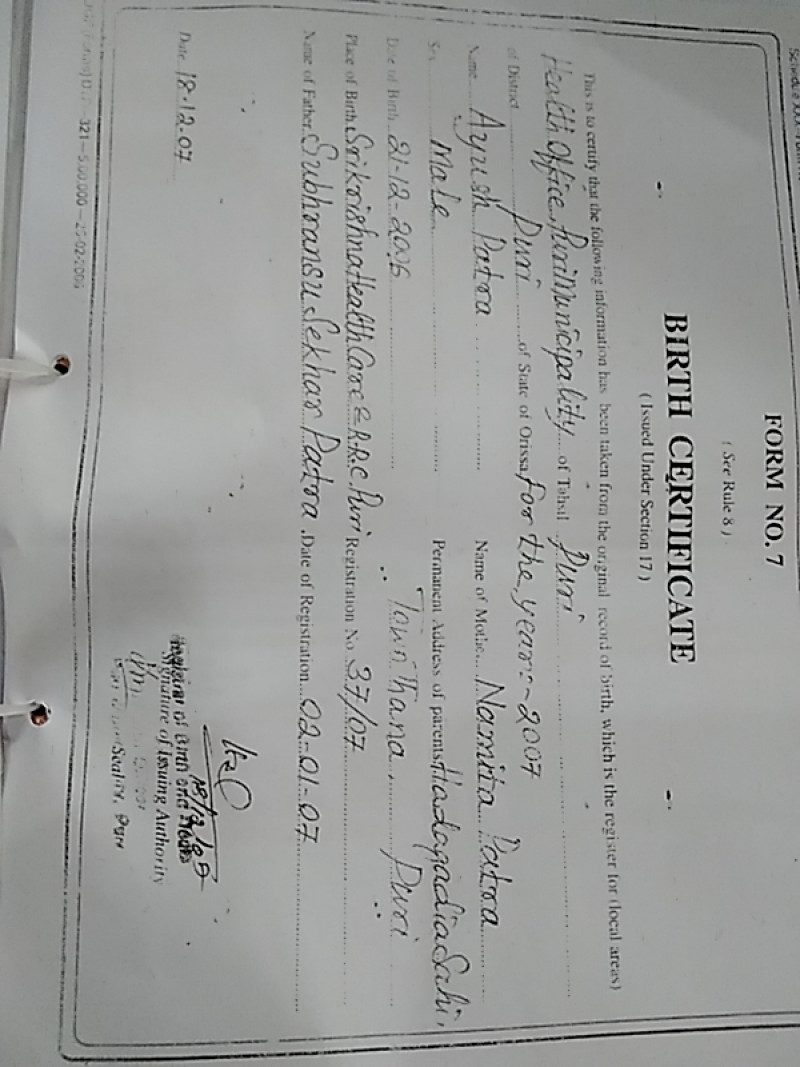 FORM NO. 7
( See Rule 8 )
BIRTH CERTIFICATE
( Issued Under Section 17 )
This is to certify that the following information has been taken from the original record of birth, which is the register for (local areas)
Health Office, Puri Municipality of Tahsil Puri
of District Puri of State of Orissa for the year:-2007
Name Ayush Patra Name of Mother Namita Patra
Sex Male Permanent Address of parents Hadagadia Sahi,
Date of Birth 21-12-2006 Town Thana, Puri
Place of Birth Srikrishna Health Care & R.R.C Puri Registration No. 37/07
Name of Father Subhransu Sekhar Patra Date of Registration 02-01-07
Date 18.12.07
Signature of Issuing Authority
321-5,00,000-25-02-2006